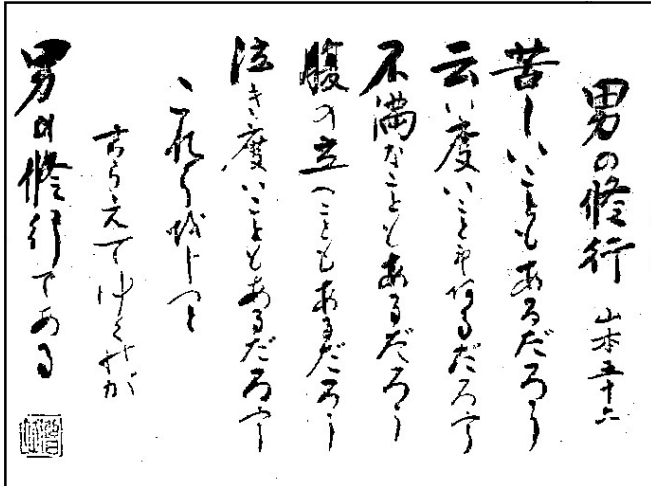 男の修行 山本五十六
苦しいこともあるだろう
云い度いこともあるだろう
不満なこともあるだろう
腹の立つこともあるだろう
泣き度いこともあるだろう
これらをじっと
こらえてゆくのが
男の修行である